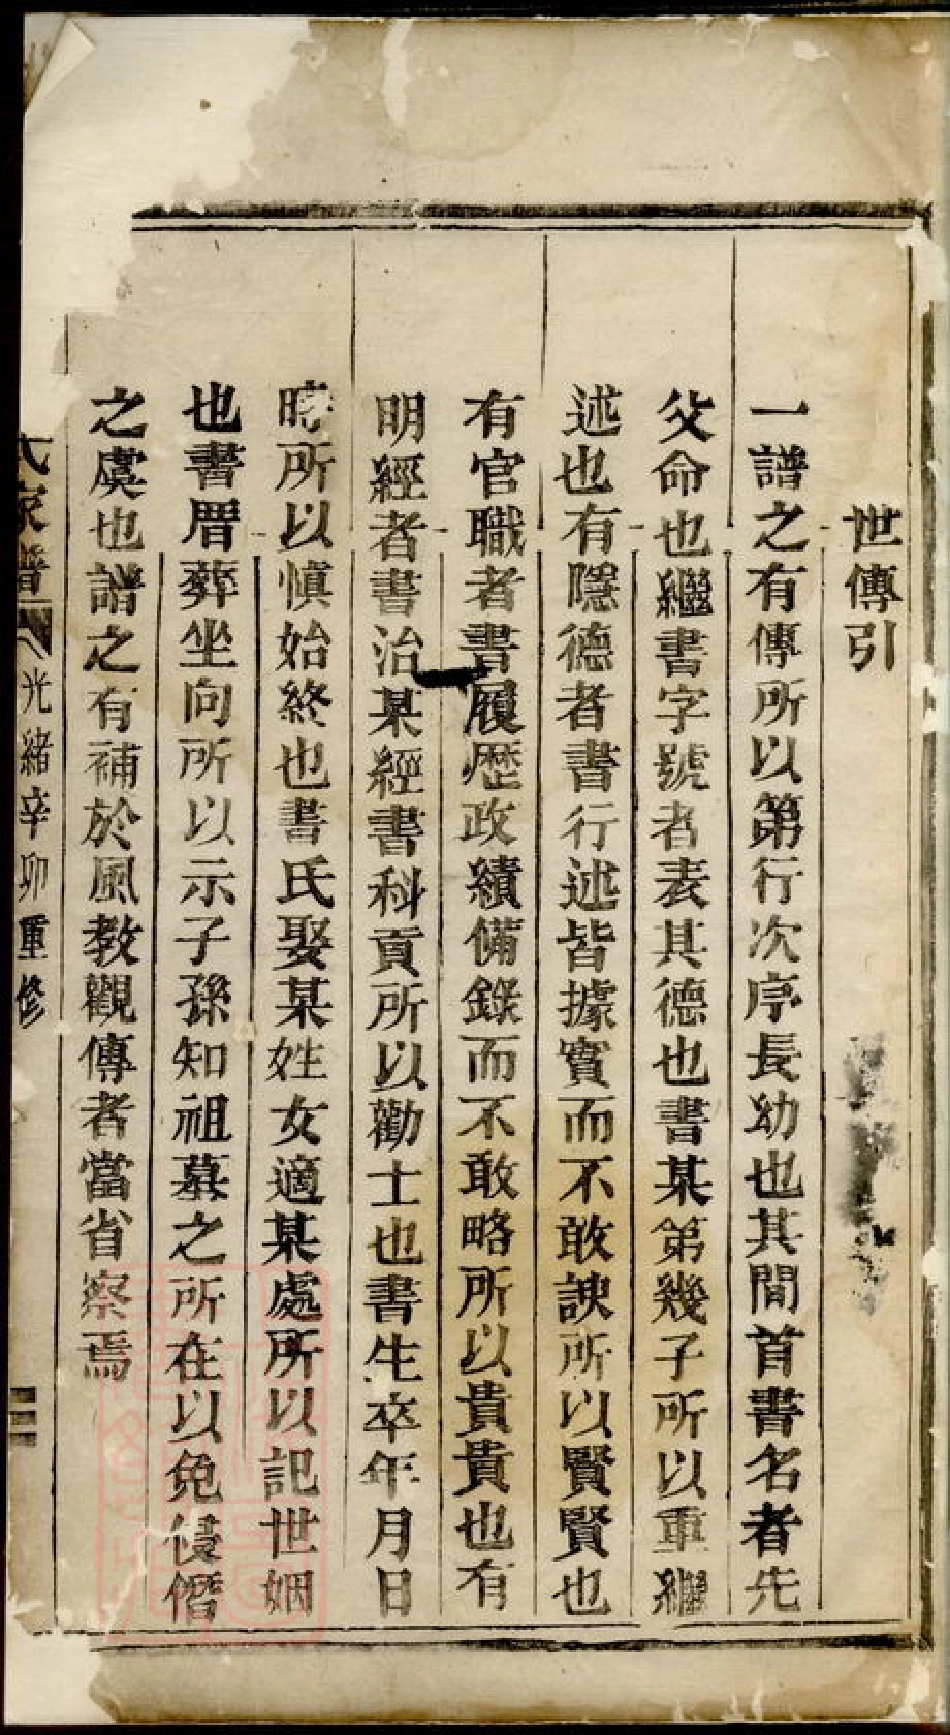 世傳引
一譜之有傳所以第行次序長幼也其間首書名者先
父命也繼書字號者表其德也書某第幾子所以重繼
述也有隱德者書行述皆據實而不敢諛所以賢賢也
有官職者書履歷政績備錄而不敢略所以貴貴也有
明經者書治某經書科貢所以勸士也書生卒年月日
時所以慎始終也書氏娶某姓女適某處所以記世姻
也書厝葬坐向所以示子孫知祖墓之所在以免侵僭
之虞也譜之有補於風教觀傳者當省察焉
氏家譜 光緒辛卯重修 三